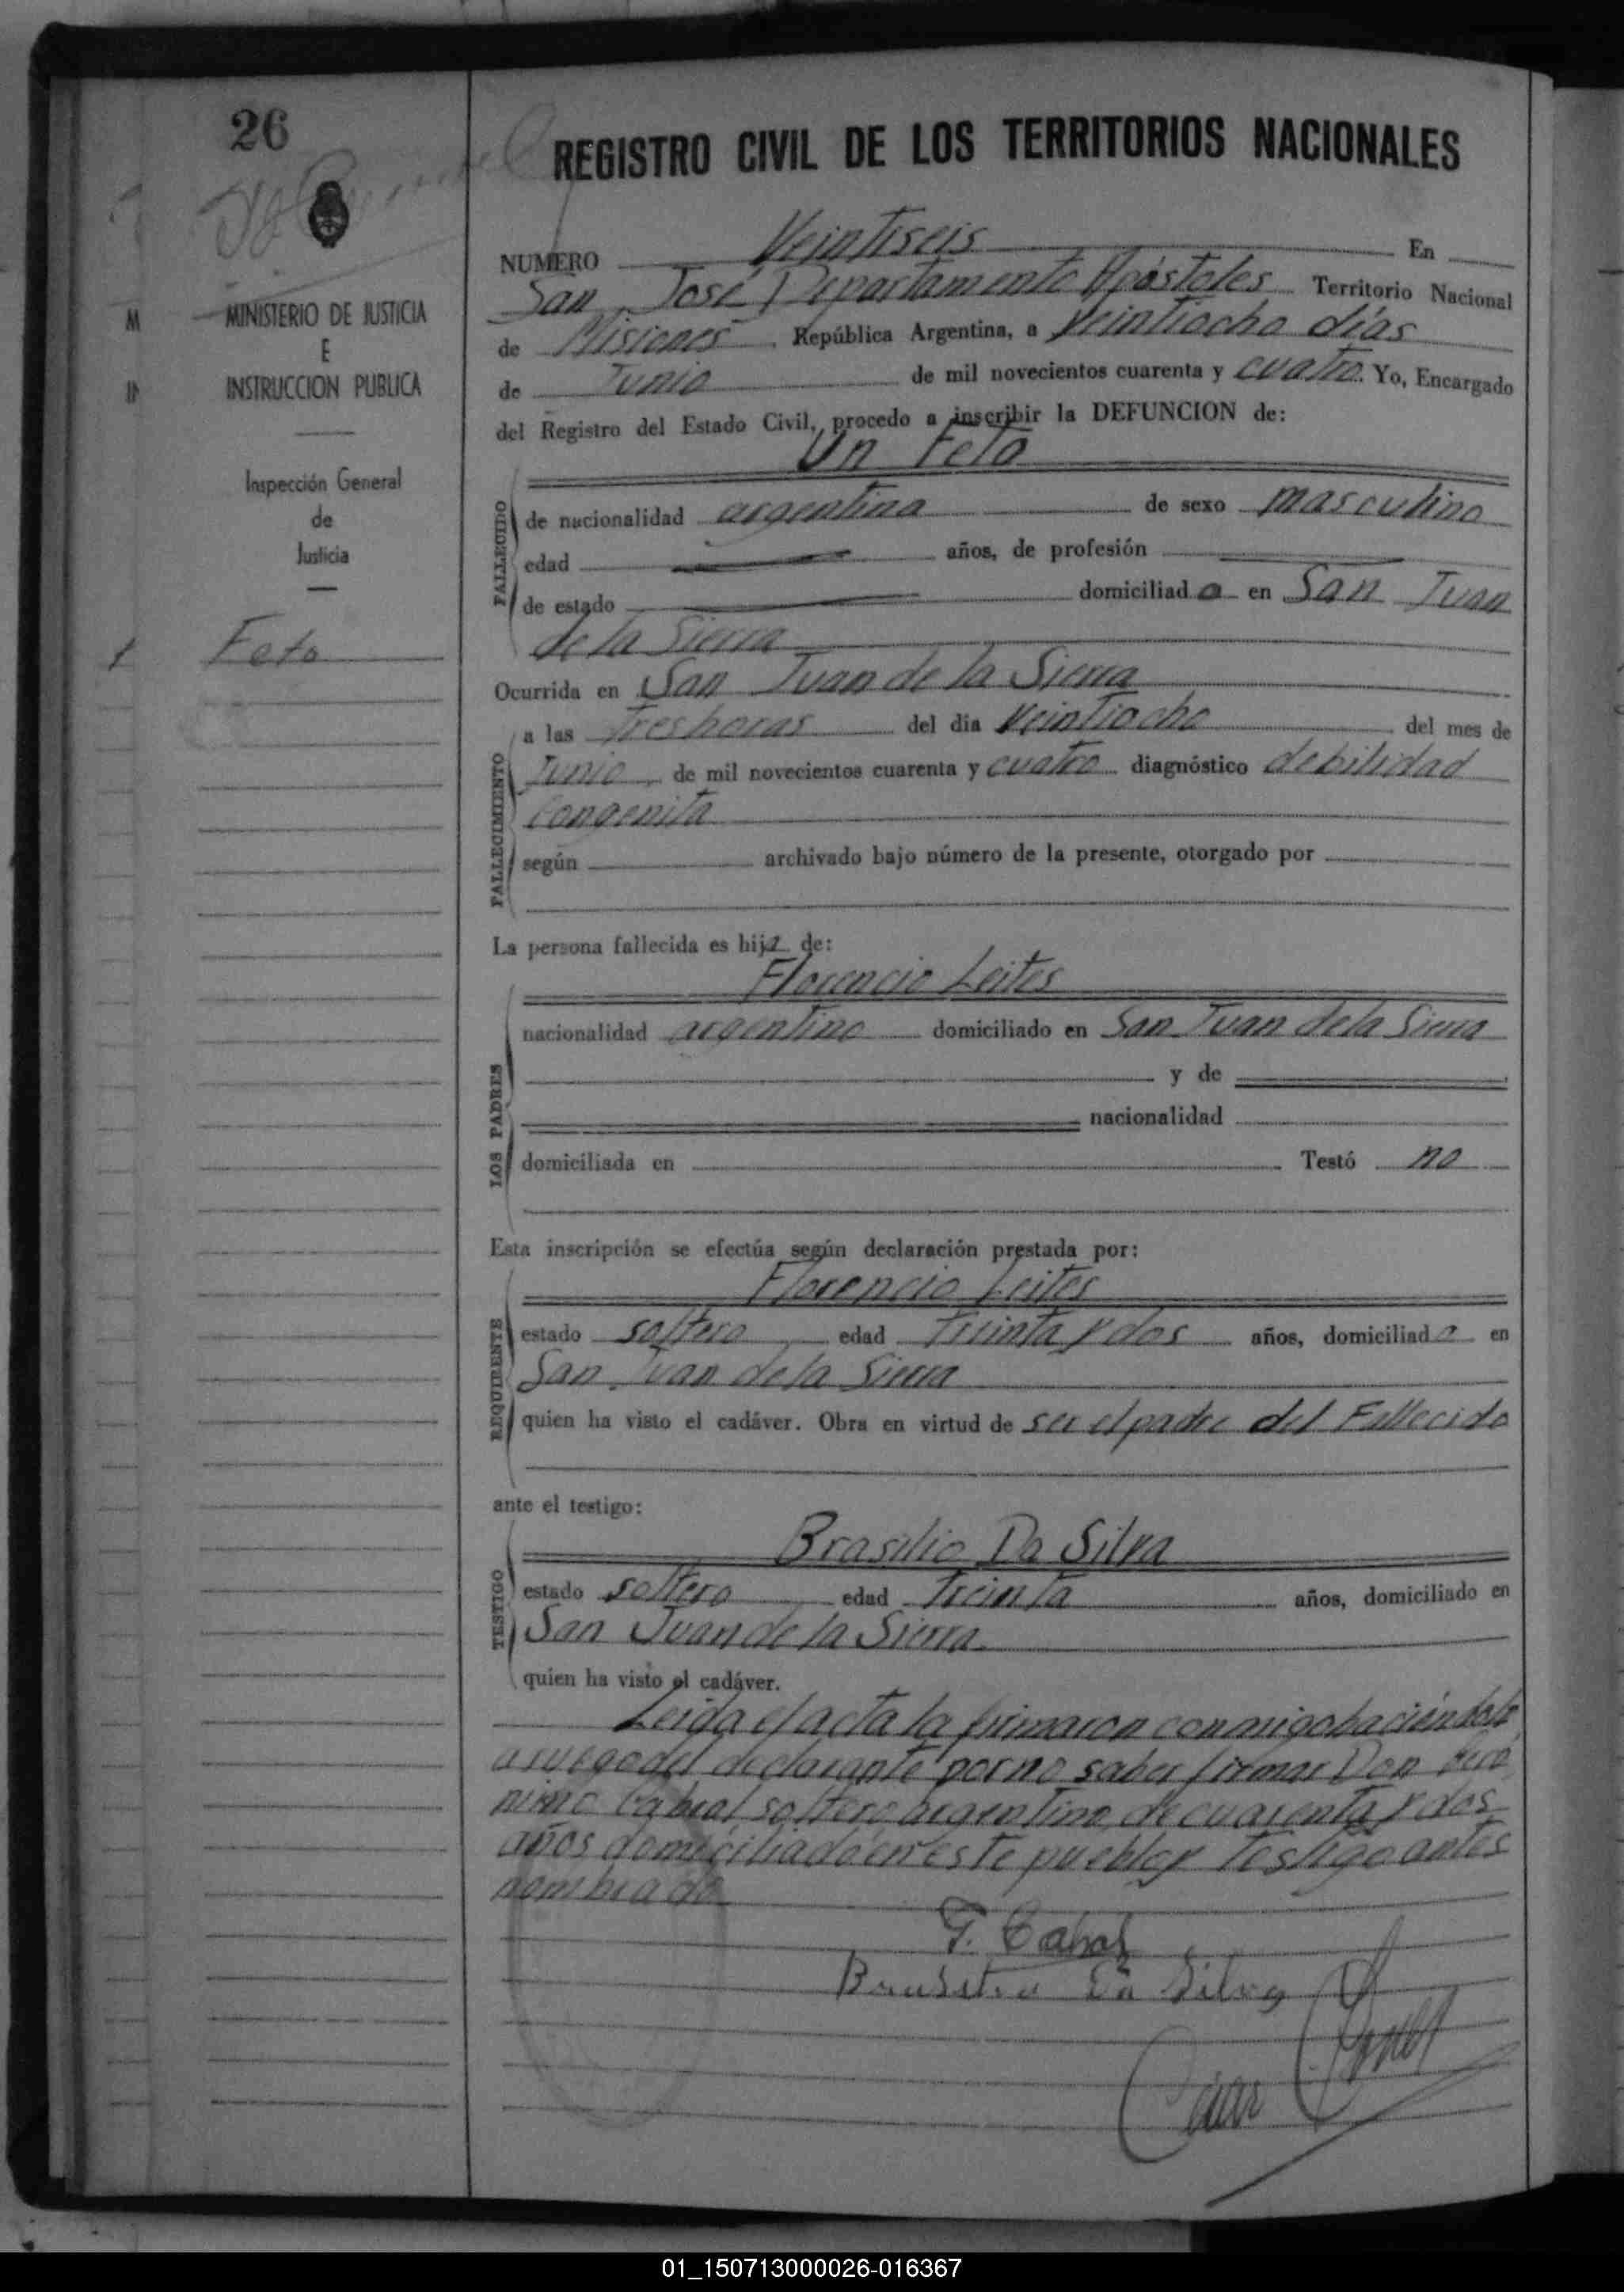 26
REGISTRO CIVIL DE LOS TERRITORIOS NACIONALES
MINISTERIO DE JUSTICIA
E
INSTRUCCION PUBLICA
Inspección General
de
Justicia
Feto
NUMERO Veintiseis En
San José, Departamento Apóstoles Territorio Nacional
de Misiones República Argentina, a Veintiocho días
de Junio de mil novecientos cuarenta y cuatro. Yo, Encargado
del Registro del Estado Civil, procedo a inscribir la DEFUNCION de:
Un Feto
FALLECIDO
de nacionalidad argentina de sexo masculino
edad años, de profesión
de estado domiciliado en San Juan
de la Sierra
Ocurrida en San Juan de la Sierra
FALLECIMIENTO
a las tres horas del dia Veintiocho del mes de
Junio de mil novecientos cuarenta y cuatro diagnóstico debilidad
congenita
según archivado bajo número de la presente, otorgado por
La persona fallecida es hij de:
LOS PADRES
Florencio Leites
nacionalidad argentino domiciliado en San Juan de la Sierra
y de
nacionalidad
domiciliada en Testó no
Esta inscripción se efectúa según declaración prestada por:
REQUIRENTE
Florencio Leites
estado soltero edad Treinta y dos años, domiciliado en
San Juan de la Sierra
quien ha visto el cadáver. Obra en virtud de ser el padre del Fallecido
ante el testigo:
TESTIGO
Brasilio Da Silva
estado soltero edad Treinta años, domiciliado en
San Juan de la Sierra
quien ha visto el cadáver.
Leida el acta la firmaron conmigo haciéndolo
a ruego del declarante por no saber firmar Don Geró
nimo Cabral soltero argentino de cuarenta y dos
años domiciliado en este pueblo y testigo antes
nombrado
G. Cabral
Da Silva
01_150713000026-016367